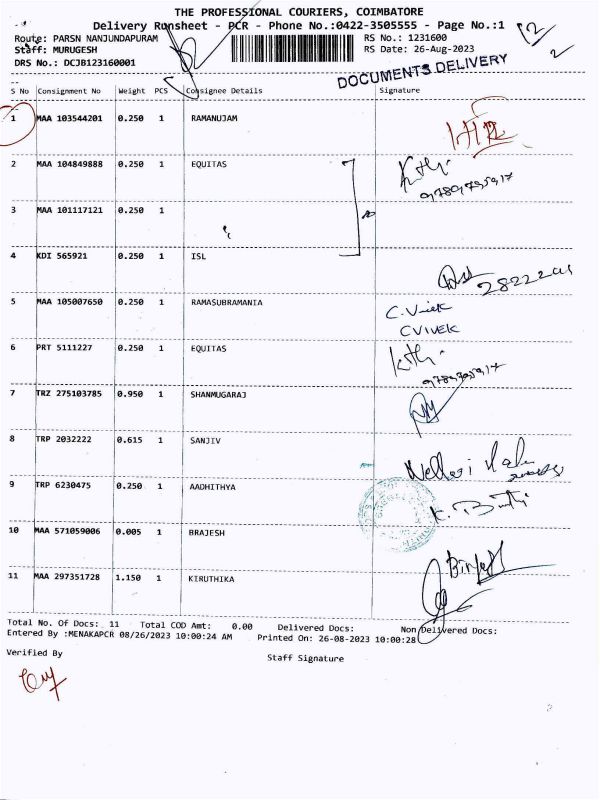 THE PROFESSIONAL COURIERS, COIMBATORE
Delivery Runsheet - PCR - Phone No.:0422-3505555 - Page No.:1
Route: PARSN NANJUNDAPURAM
RS No.: 1231600
Staff: MURUGESH
RS Date: 26-Aug-2023
DRS No.: DCJB123160001
DOCUMENTS DELIVERY
S No Consignment No Weight PCS Consignee Details Signature
1 MAA 103544201 0.250 1 RAMANUJAM
2 MAA 104849888 0.250 1 EQUITAS
3 MAA 101117121 0.250 1
4 KDI 565921 0.250 1 ISL
5 MAA 105007650 0.250 1 RAMASUBRAMANIA
C. Vivek
C VIVEK
6 PRT 5111227 0.250 1 EQUITAS
7 TRZ 275103785 0.950 1 SHANMUGARAJ
8 TRP 2032222 0.615 1 SANJIV
9 TRP 6230475 0.250 1 AADHITHYA
10 MAA 571059006 0.005 1 BRAJESH
11 MAA 297351728 1.150 1 KIRUTHIKA
Total No. Of Docs: 11 Total COD Amt: 0.00 Delivered Docs: Non Delivered Docs:
Entered By :MENAKAPCR 08/26/2023 10:00:24 AM Printed On: 26-08-2023 10:00:28
Verified By
Staff Signature